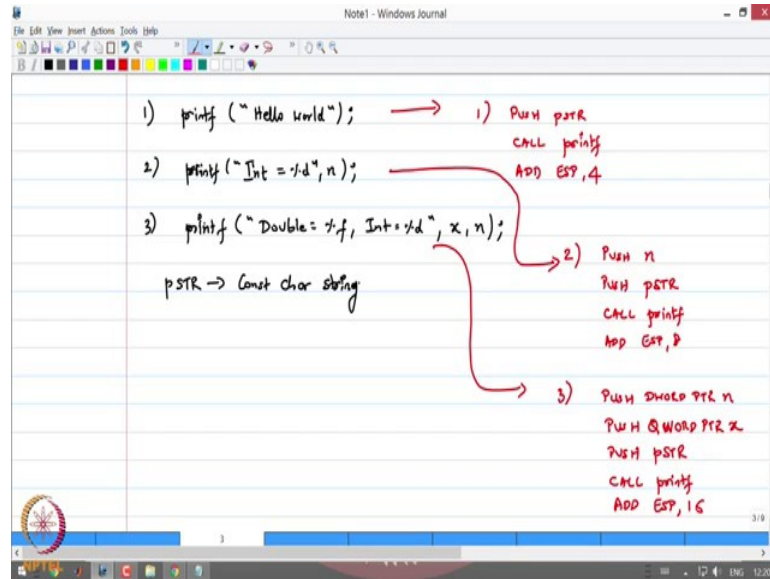 Note1 - Windows Journal
File Edit View Insert Actions Tools Help
1) printf ("Hello World"); 1) PUSH pSTR
CALL printf
ADD ESP, 4
2) printf ("Int = %d", n);
3) printf ("Double = %f, Int = %d", x, n);
2) PUSH n
PUSH pSTR
CALL printf
ADD ESP, 8
pSTR → Const char string
3) PUSH DWORD PTR n
PUSH QWORD PTR x
PUSH pSTR
CALL printf
ADD ESP, 16
3/9
3
NPTEL
ENG 12:20